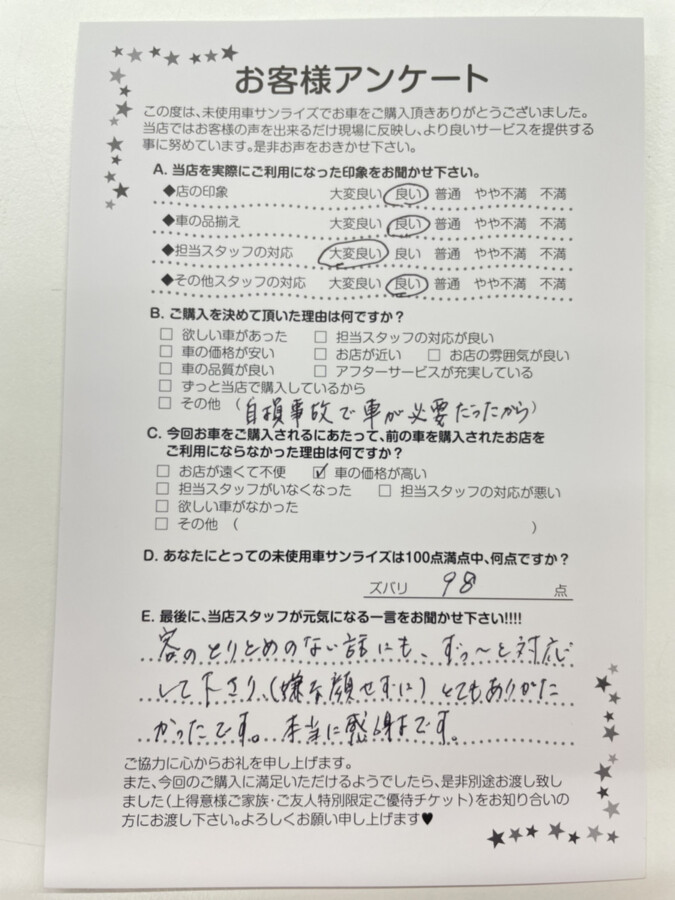 お客様アンケート
この度は、未使用車サンライズでお車をご購入頂きありがとうございました。
当店ではお客様の声を出来るだけ現場に反映し、より良いサービスを提供する
事に努めています。是非お声をおきかせ下さい。
A. 当店を実際にご利用になった印象をお聞かせ下さい。
◆店の印象 大変良い 良い 普通 やや不満 不満
◆車の品揃え 大変良い 良い 普通 やや不満 不満
◆担当スタッフの対応 大変良い 良い 普通 やや不満 不満
◆その他スタッフの対応 大変良い 良い 普通 やや不満 不満
B. ご購入を決めて頂いた理由は何ですか?
□ 欲しい車があった □ 担当スタッフの対応が良い
□ 車の価格が安い □ お店が近い □ お店の雰囲気が良い
□ 車の品質が良い □ アフターサービスが充実している
□ ずっと当店で購入しているから
□ その他 (自損事故で車が必要だったから)
C. 今回お車をご購入されるにあたって、前の車を購入されたお店を
ご利用にならなかった理由は何ですか?
□ お店が遠くて不便 ☑ 車の価格が高い
□ 担当スタッフがいなくなった □ 担当スタッフの対応が悪い
□ 欲しい車がなかった
□ その他 ( )
D. あなたにとっての未使用車サンライズは100点満点中、何点ですか?
ズバリ 98 点
E. 最後に、当店スタッフが元気になる一言をお聞かせ下さい!!!!
客のとりとめのない話にも、ずっ〜と対応
して下さり、(嫌な顔せずに)とてもありがた
かったです。本当に感謝です。
ご協力に心からお礼を申し上げます。
また、今回のご購入に満足いただけるようでしたら、是非別途お渡し致し
ました(上得意様ご家族・ご友人特別限定ご優待チケット)をお知り合いの
方にお渡し下さい。よろしくお願い申し上げます♥